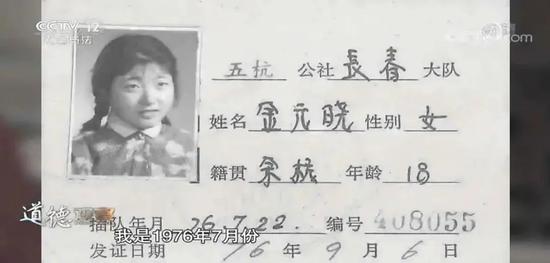 CCTV 12
五杭 公社 長春 大队
姓名 金元晓 性别 女
籍贯 余杭 年龄 18
道德观察
插队年月 76.7.22. 编号 408055
我是1976年7月份
发证日期 76年9月6日